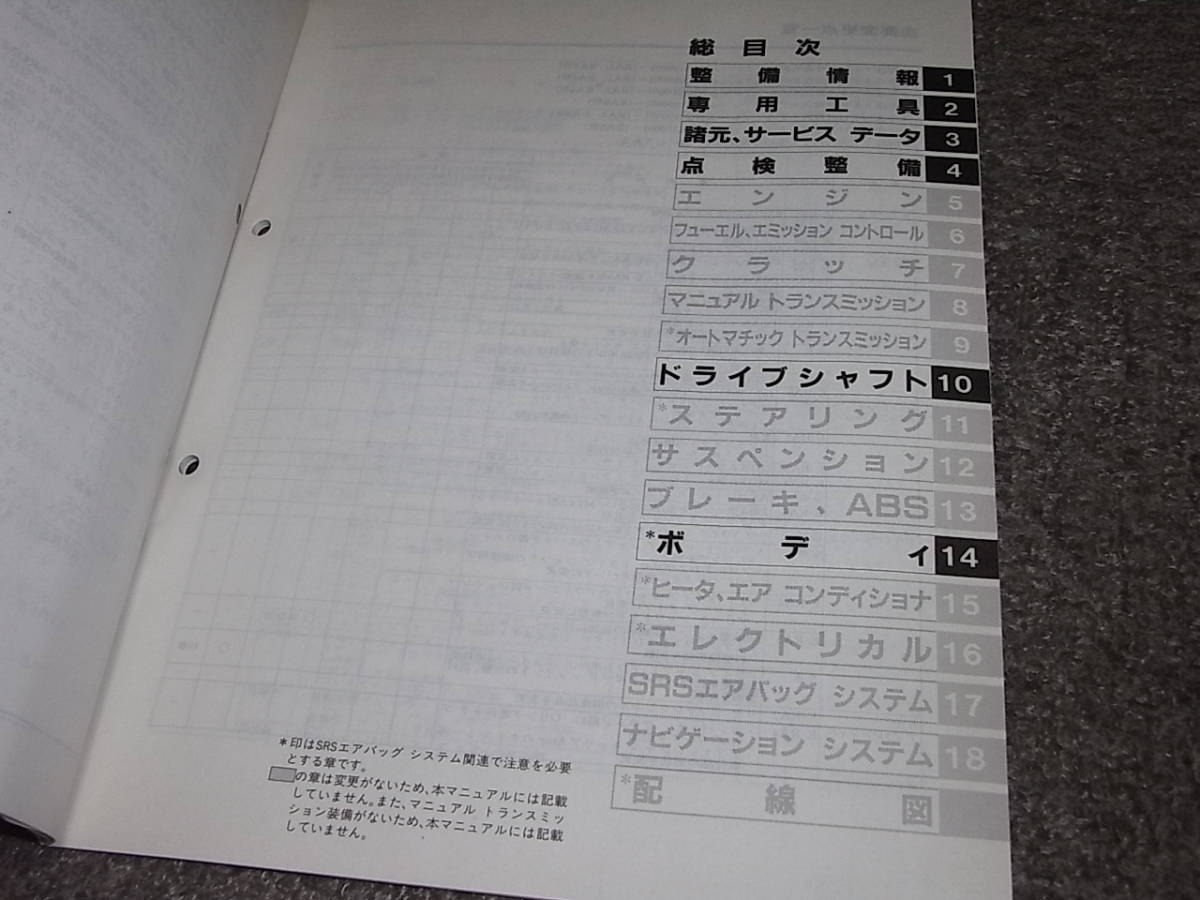 総目次
整備情報 1
専用工具 2
諸元、サービス データ 3
点検整備 4
エンジン 5
フューエル、エミッション コントロール 6
クラッチ 7
マニュアル トランスミッション 8
*オートマチック トランスミッション 9
ドライブシャフト 10
*ステアリング 11
サスペンション 12
ブレーキ、ABS 13
*ボディ 14
*ヒータ、エア コンディショナ 15
*エレクトリカル 16
SRSエアバッグ システム 17
ナビゲーション システム 18
*配線図
*印はSRSエアバッグ システム関連で注意を必要
とする章です。
の章は変更がないため、本マニュアルには記載
していません。また、マニュアル トランスミッ
ション装備がないため、本マニュアルには記載
していません。